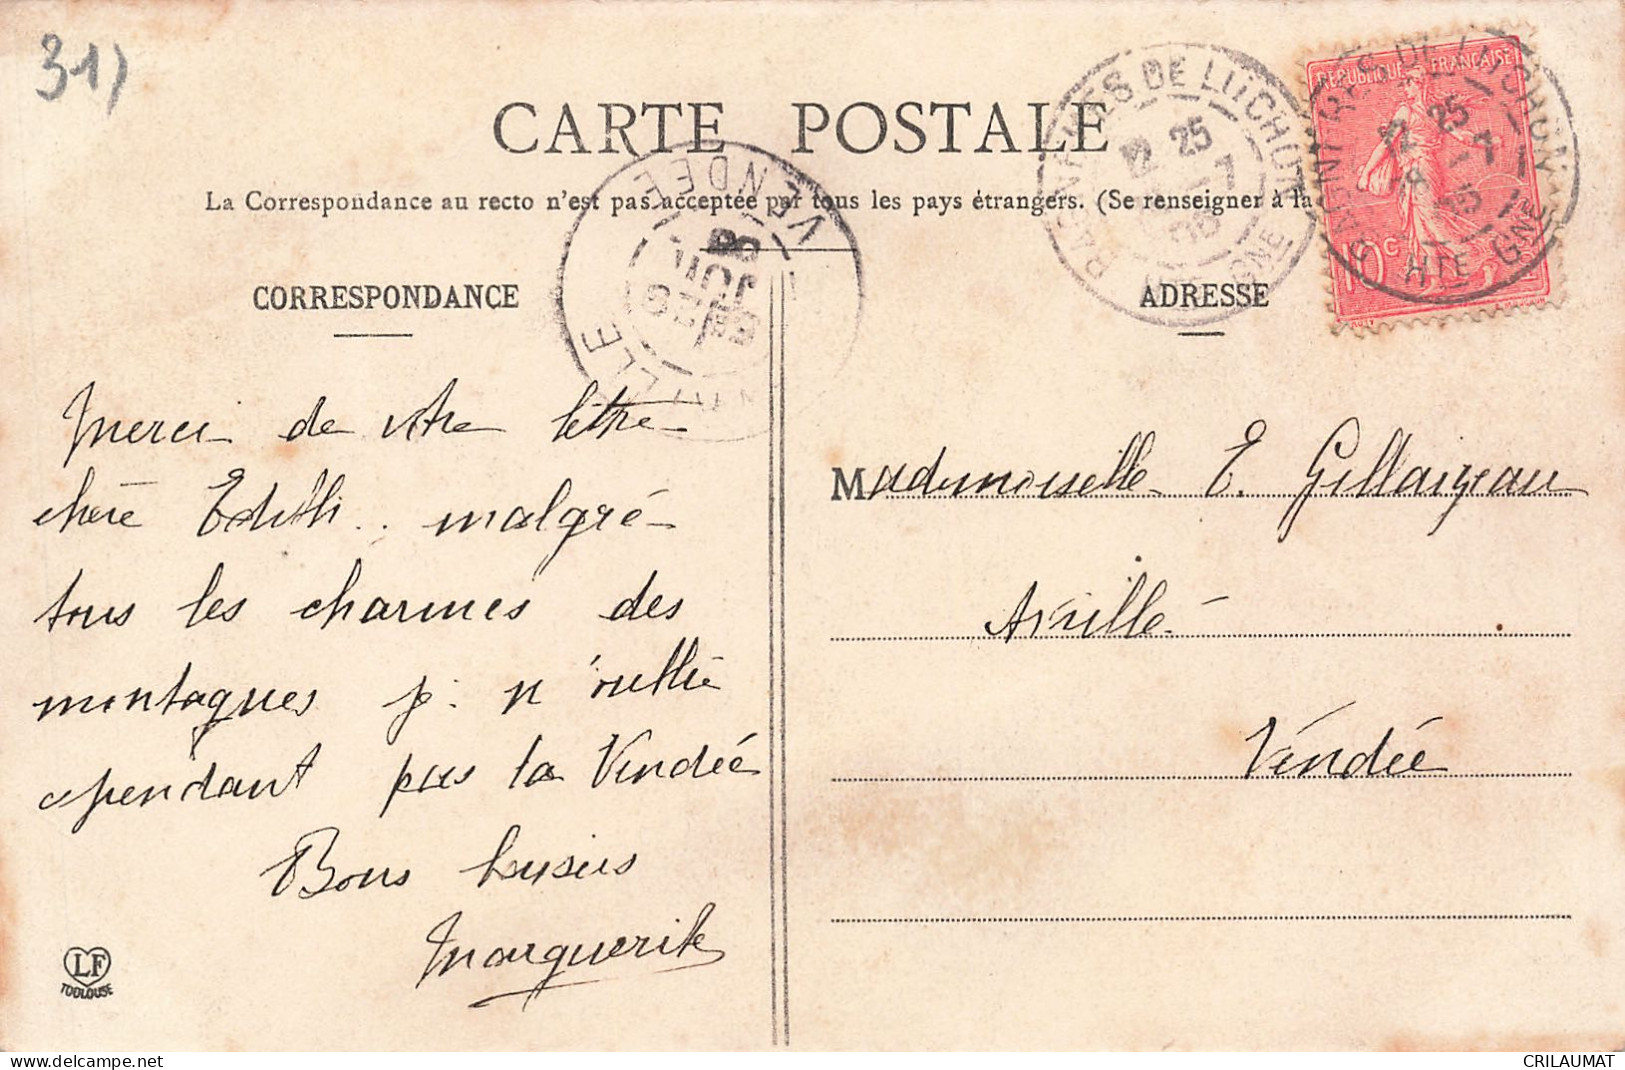 31)
CARTE POSTALE
La Correspondance au recto n'est pas acceptée par tous les pays étrangers. (Se renseigner à la
CORRESPONDANCE
ADRESSE
BAGNÈRES DE LUCHON
12 25
7
HTE GNE
REPUBLIQUE FRANÇAISE
10c
BAGNÈRES DE LUCHON
12 25
7
HTE GNE
VENDEE
JUIL
Merci de votre lettre
chère Edith.. malgré
tous les charmes des
montagnes je n'oublie
cependant pas la Vendée
Bons baisers
Marguerite
Mademoiselle E. Gillaizeau
Avrillé
Vendée
LF
TOULOUSE
www.delcampe.net
CRILAUMAT